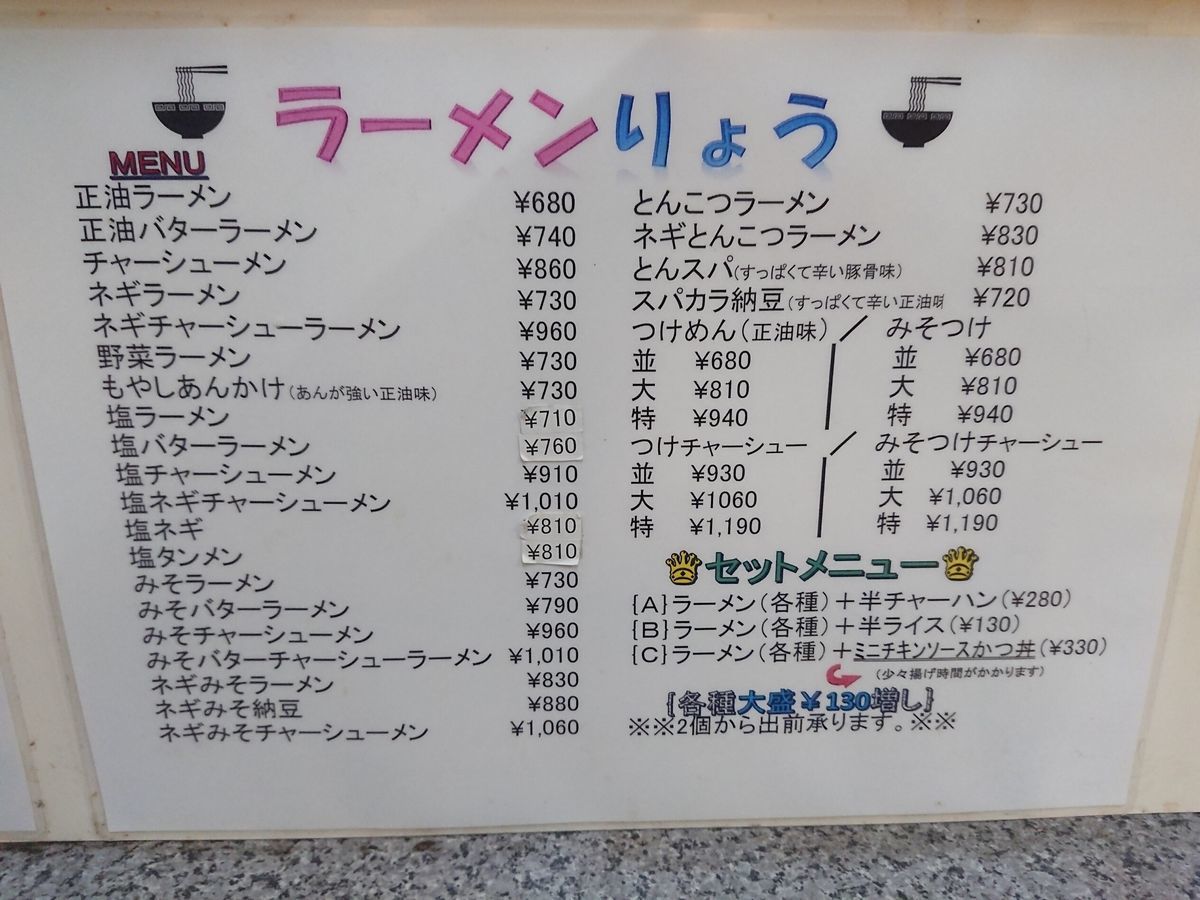 ラーメンりょう
MENU
正油ラーメン ¥680
正油バターラーメン ¥740
チャーシューメン ¥860
ネギラーメン ¥730
ネギチャーシューラーメン ¥960
野菜ラーメン ¥730
もやしあんかけ(あんが強い正油味) ¥730
塩ラーメン ¥710
塩バターラーメン ¥760
塩チャーシューメン ¥910
塩ネギチャーシューメン ¥1,010
塩ネギ ¥810
塩タンメン ¥810
みそラーメン ¥730
みそバターラーメン ¥790
みそチャーシューメン ¥960
みそバターチャーシューラーメン ¥1,010
ネギみそラーメン ¥830
ネギみそ納豆 ¥880
ネギみそチャーシューメン ¥1,060
とんこつラーメン ¥730
ネギとんこつラーメン ¥830
とんスパ(すっぱくて辛い豚骨味) ¥810
スパカラ納豆(すっぱくて辛い正油味 ¥720
つけめん(正油味)／ みそつけ
並 ¥680 並 ¥680
大 ¥810 大 ¥810
特 ¥940 特 ¥940
つけチャーシュー ／ みそつけチャーシュー
並 ¥930 並 ¥930
大 ¥1060 大 ¥1,060
特 ¥1,190 特 ¥1,190
セットメニュー
{A}ラーメン(各種)＋半チャーハン(¥280)
{B}ラーメン(各種)＋半ライス(¥130)
{C}ラーメン(各種)＋ミニチキンソースかつ丼(¥330)
(少々揚げ時間がかかります)
{各種大盛¥130増し}
※※2個から出前承ります。※※